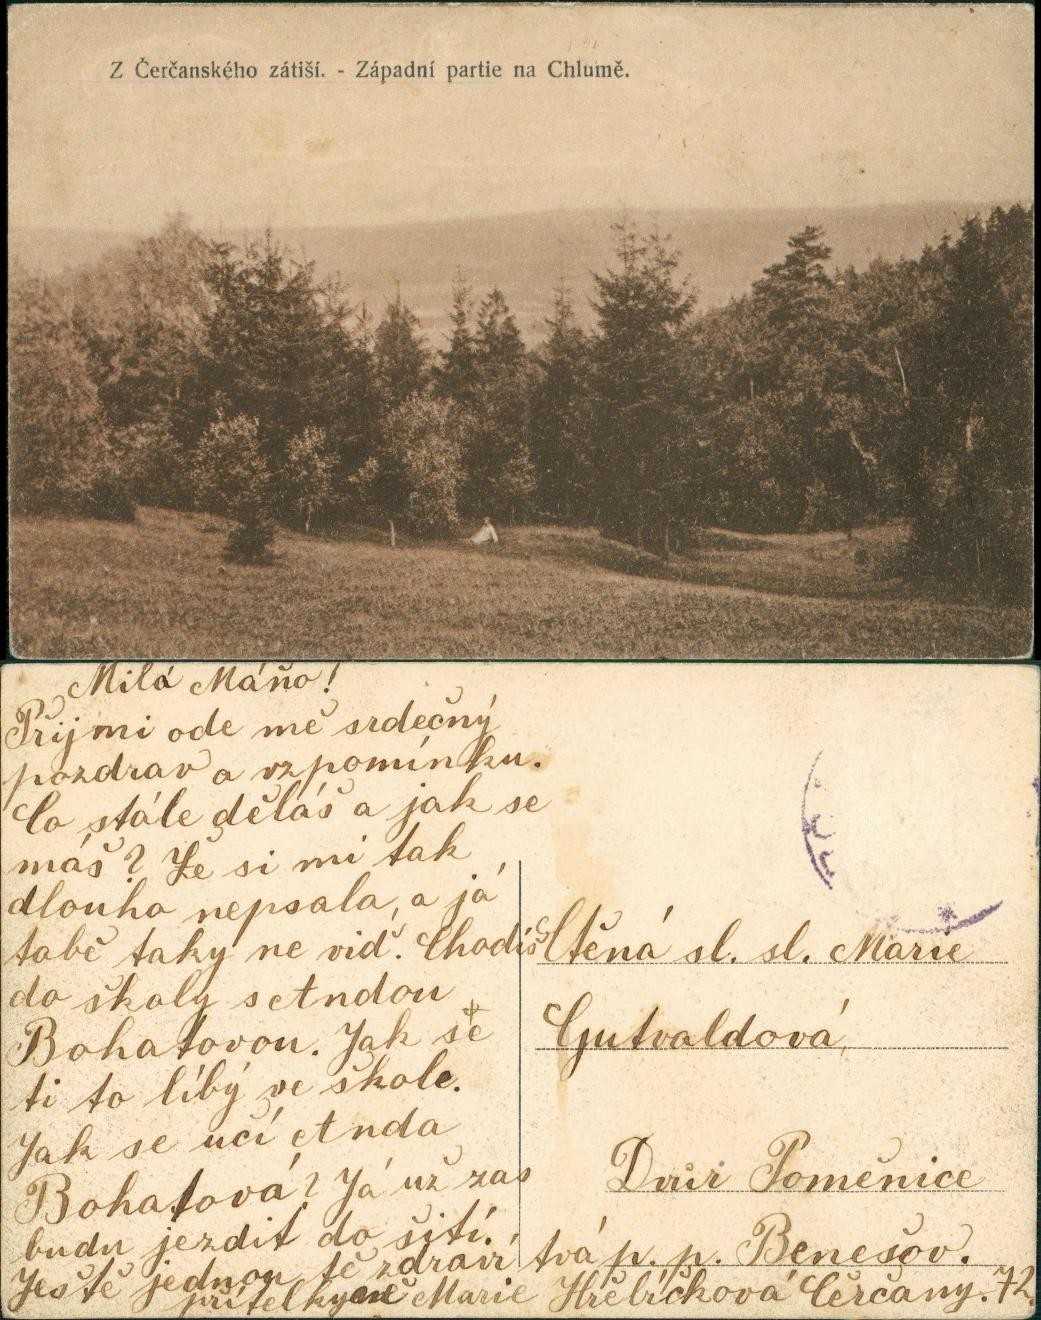 Z Čerčanského zátiší. - Západní partie na Chlumě.
Milá Máňo!
Přijmi ode mě srdečný
pozdrav a vzpomínku.
Co stále děláš a jak se
máš? Že si mi tak
dlouho nepsala, a já
tobě taky ne viď. Chodíš
do školy s Andou
Bohatovou. Jak se
ti to líbý ve škole.
Jak se učí Anda
Bohatová? Já už zas
budu jezdit do šití.
Ještě jednou tě zdraví tvá
přítelkyně Marie Hřebíčková Čerčany. 72.
Ctěná sl. sl. Marie
Gutvaldová
Dvůr Poměnice
p. p. Benešov.